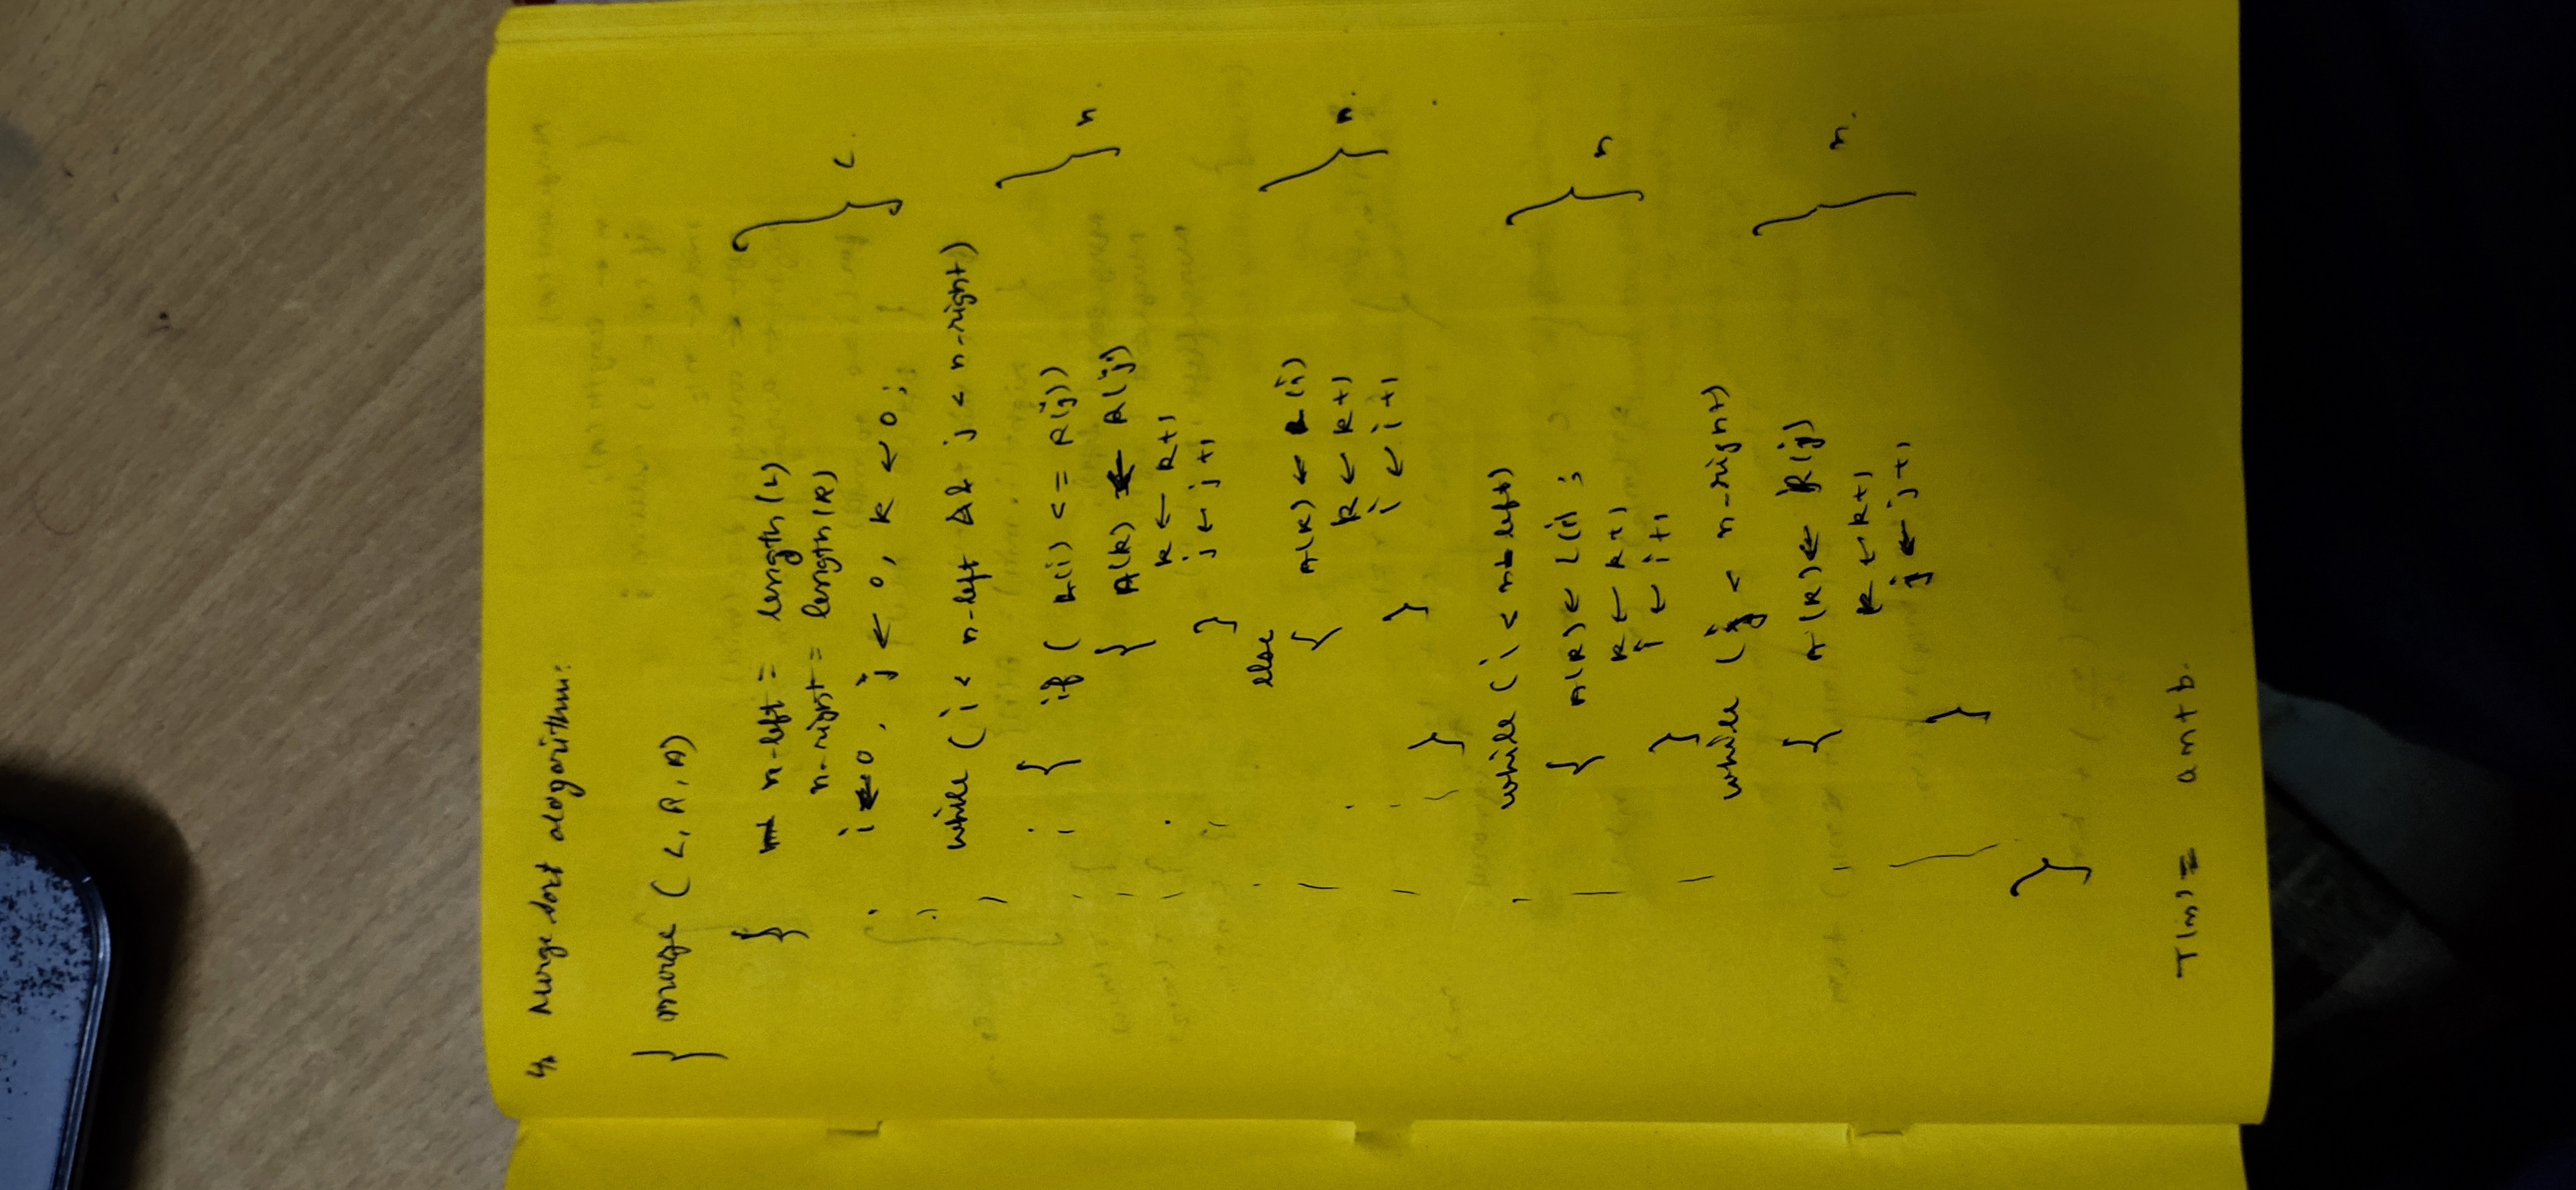 4. Merge Sort alogorithm:
merge (L, R, A)
{ n-left = length(L)
n-right = length(R)
i ← 0, j ← 0, k ← 0;
} c.
while (i < n-left && j < n-right)
{ if ( L(i) <= R(j))
{ A(k) ← R(j)
k ← k+1
j ← j+1
}
} n.
else
{ A(k) ← L(i)
k ← k+1
i ← i+1
}
} n.
}
while (i < n-left)
{ A(k) ← L(i);
k ← k+1
i ← i+1
}
} n
while (j < n-right)
{ A(k) ← R(j)
k ← k+1
j ← j+1
}
} n.
}
T(n) = an+b.